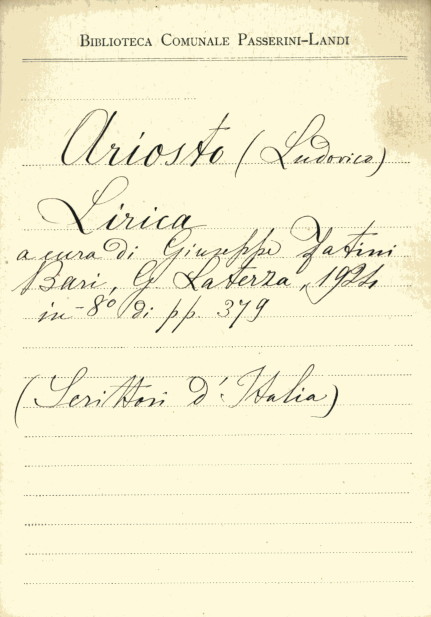 BIBLIOTECA COMUNALE PASSERINI-LANDI
Ariosto (Ludovico)
Lirica
a cura di Giuseppe Fatini
Bari, G. Laterza, 1924
in-8° di pp. 379
(Scrittori d'Italia)